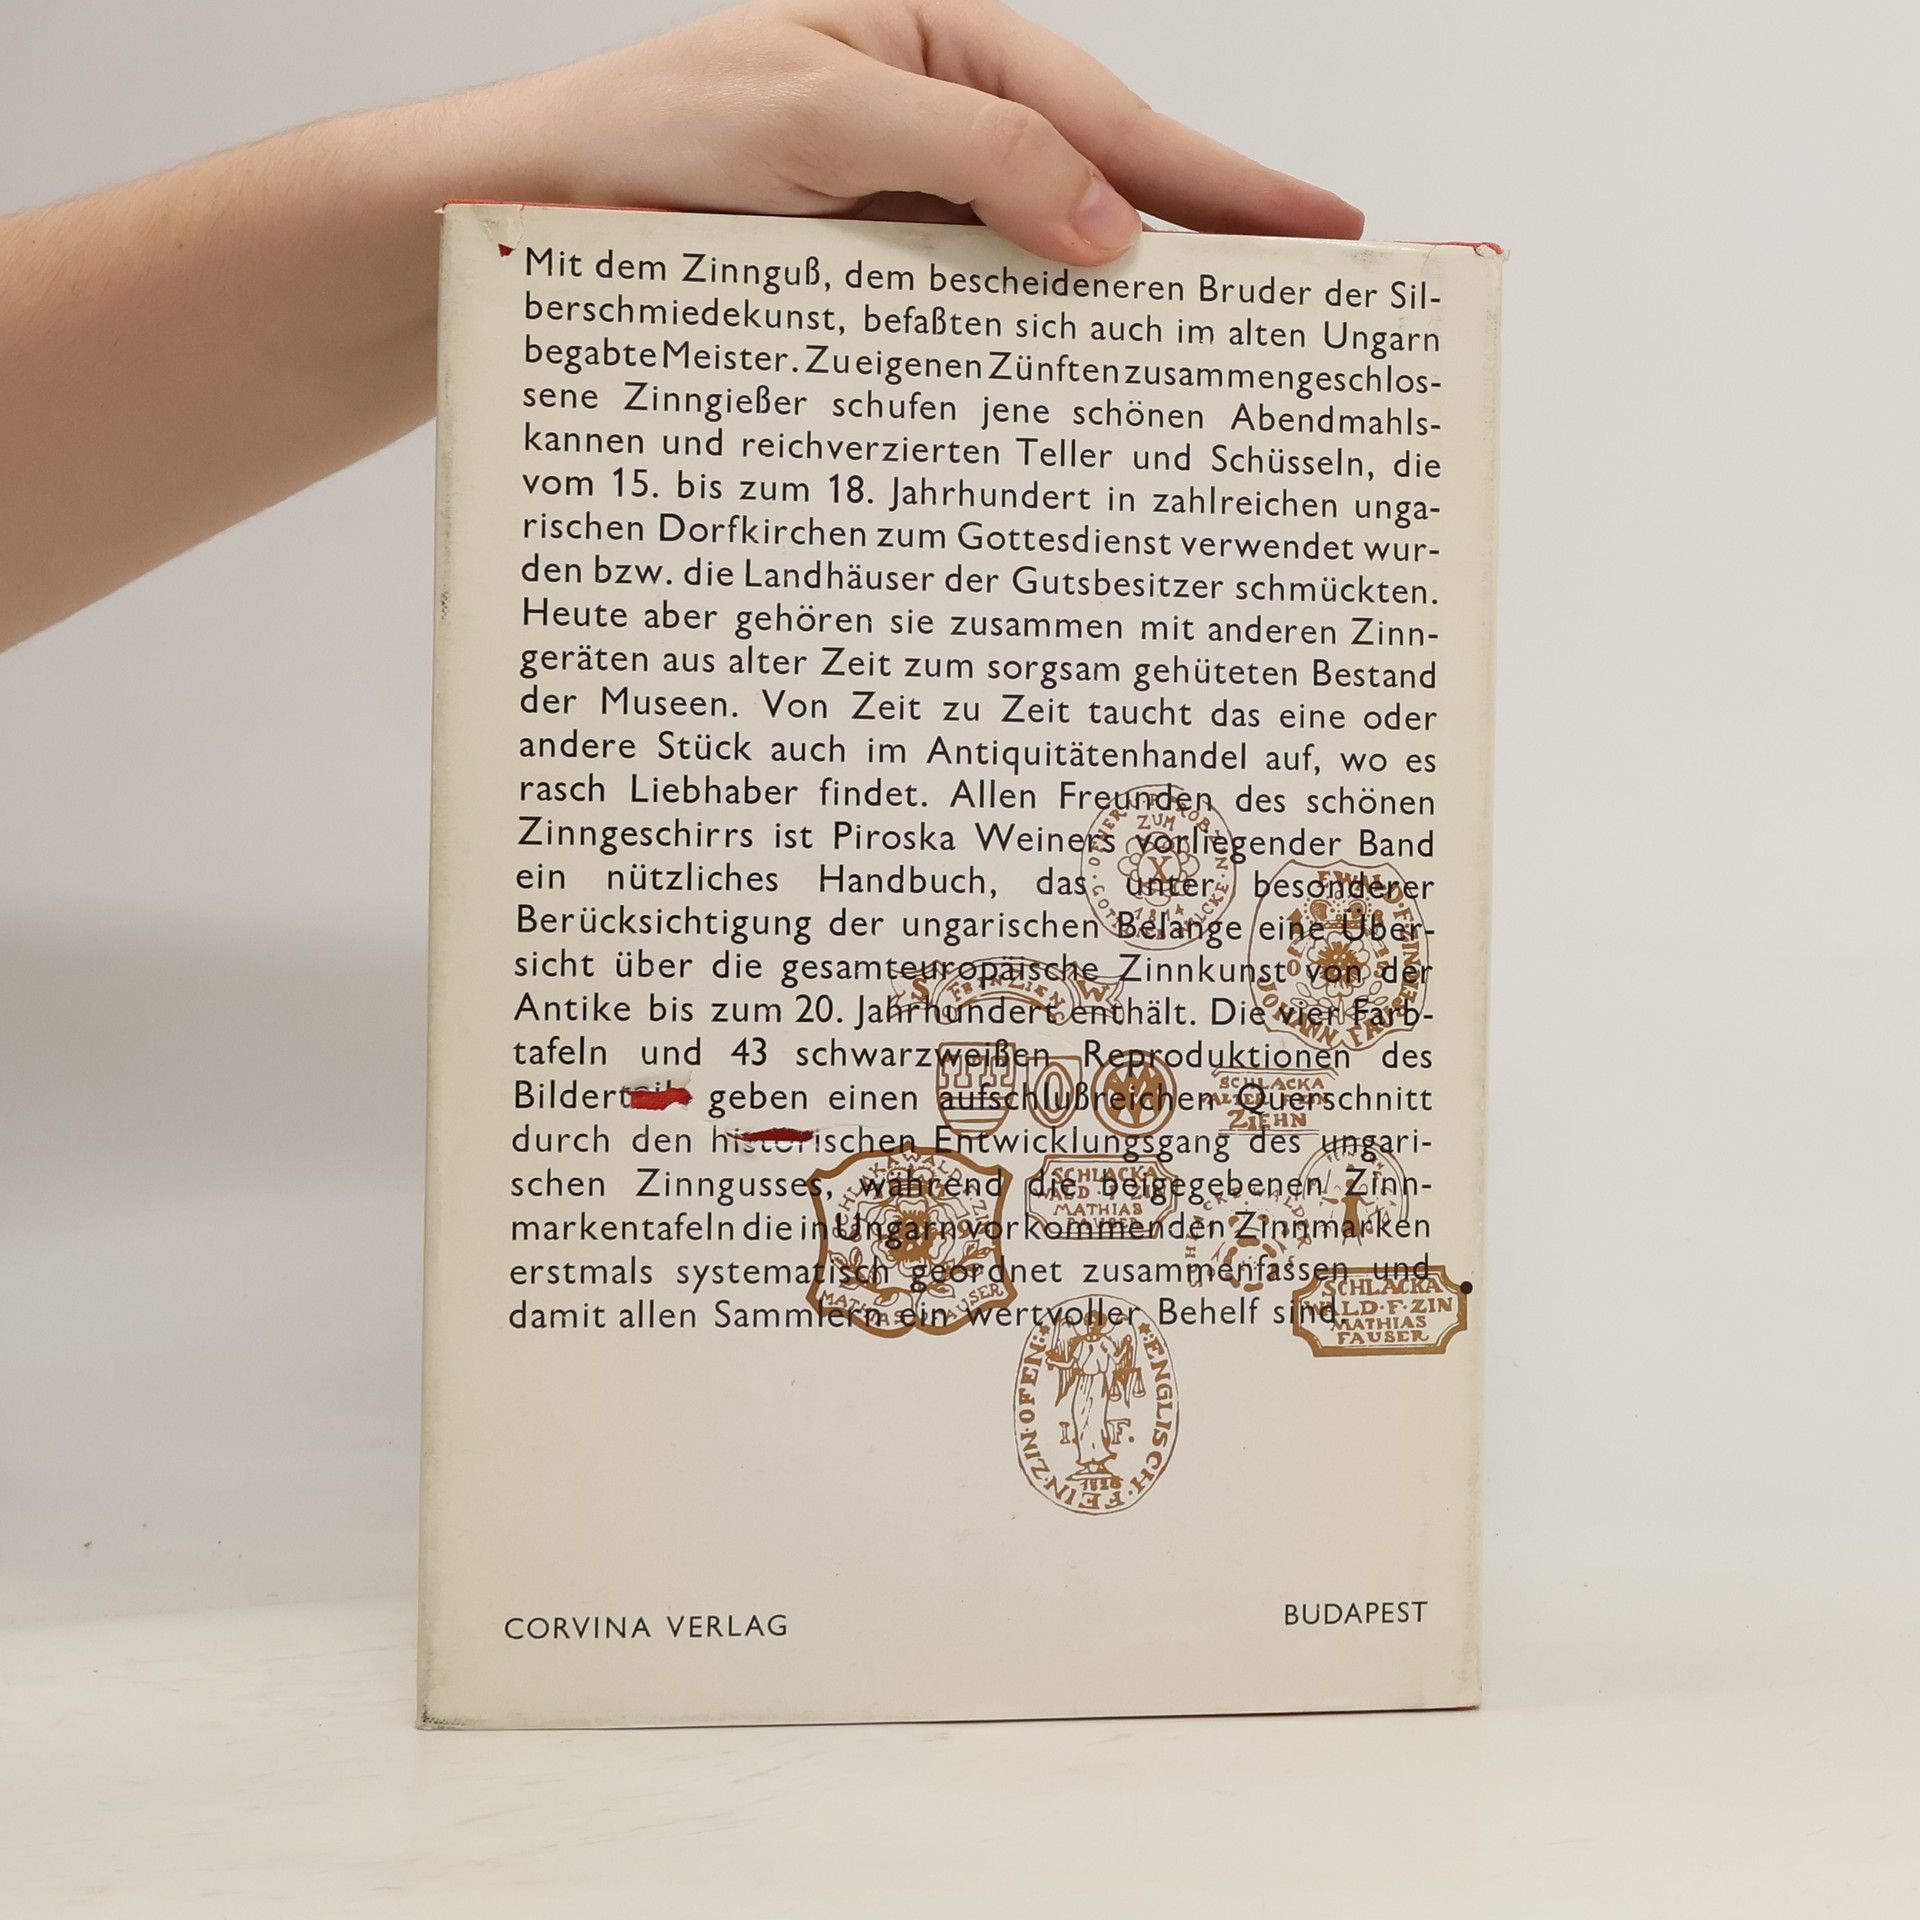 Mit dem Zinnguß, dem bescheideneren Bruder der Sil-
berschmiedekunst, befaßten sich auch im alten Ungarn
begabte Meister. Zu eigenen Zünften zusammengeschlos-
sene Zinngießer schufen jene schönen Abendmahls-
kannen und reichverzierten Teller und Schüsseln, die
vom 15. bis zum 18. Jahrhundert in zahlreichen unga-
rischen Dorfkirchen zum Gottesdienst verwendet wur-
den bzw. die Landhäuser der Gutsbesitzer schmückten.
Heute aber gehören sie zusammen mit anderen Zinn-
geräten aus alter Zeit zum sorgsam gehüteten Bestand
der Museen. Von Zeit zu Zeit taucht das eine oder
andere Stück auch im Antiquitätenhandel auf, wo es
rasch Liebhaber findet. Allen Freunden des schönen
Zinngeschirrs ist Piroska Weiners vorliegender Band
ein nützliches Handbuch, das unter besonderer
Berücksichtigung der ungarischen Belange eine Über-
sicht über die gesamteuropäische Zinnkunst von der
Antike bis zum 20. Jahrhundert enthält. Die vier Farb-
tafeln und 43 schwarzweißen Reproduktionen des
geben einen aufschlußreichen Querschnitt
durch den historischen Entwicklungsgang des ungari-
schen Zinngusses, während die beigegebenen Zinn-
markentafeln die in Ungarn vorkommenden Zinnmarken
erstmals systematisch geordnet zusammenfassen und
damit allen Sammlern ein wertvoller Behelf sind.
ZUM
X
1814
S FEINZIEN W
SCHLACKA
ZIEHN
SCHLACKA
WALD·F·ZIN
MATHIAS
FAUSER
SCHLACKA
WALD·F·ZIN
MATHIAS
FAUSER
MATHIAS FAUSER
JOHANN
FEIN·ZIN·OFEN ENGLISCH
I. F.
1826
CORVINA VERLAG
BUDAPEST